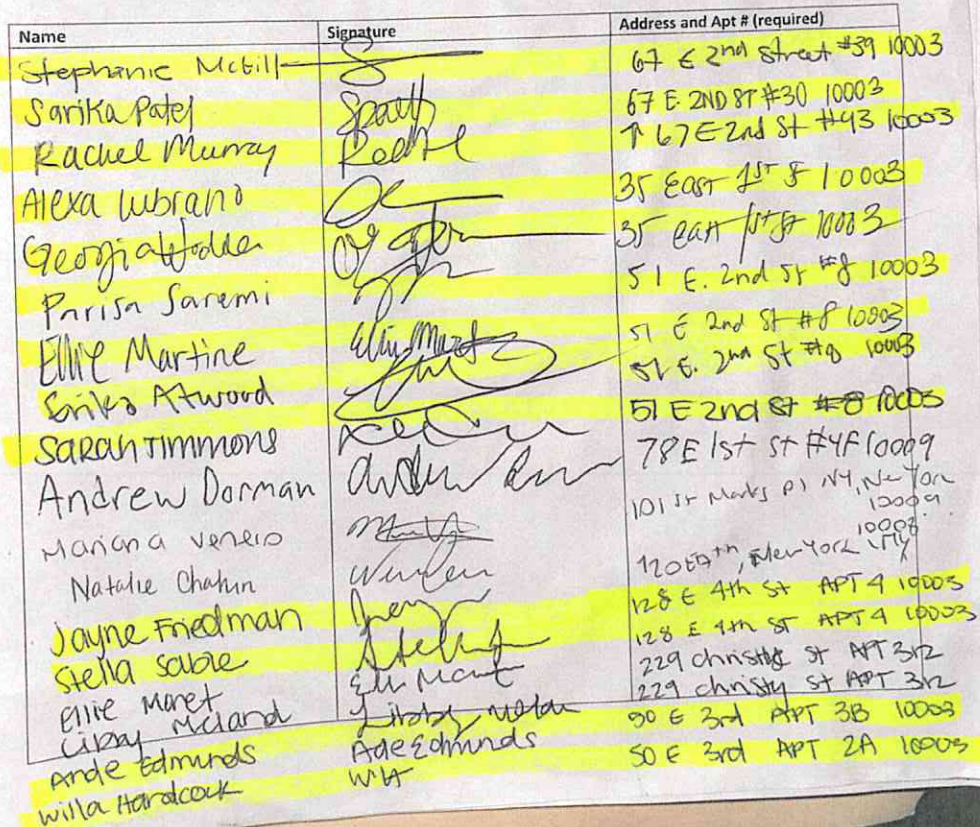 Name Signature Address and Apt # (required)
Stephanie McGill 67 E 2nd Street #39 10003
Sarika Patel Spatel 67 E. 2ND ST #30 10003
Rachel Murray 67 E 2nd St #43 10003
Alexa Lubrano 35 East 1st St 10003
Georgia 35 east 1st St 10003
Parisa Saremi 51 E. 2nd St #8 10003
Ellie Martine Ellie Mart 51 E 2nd St #8 10003
Erika Atwood 51 E. 2nd St #8 10003
SARAH TIMMONS 51 E 2nd St #8 10003
Andrew Dorman Andrew 78 E 1st St #4F 10009
Mariana Venero 101 St Marks Pl NY, New York 10009
Natalie 120 E 4th, New York 10003
Jayne Friedman 128 E 4th St APT 4 10003
Stella Sabie 128 E 4th ST APT 4 10003
Ellie Maret 229 christy St APT 312
Libby Mcland Libby 229 christy St APT 312
Ande Edmunds Ade Edmunds 50 E 3rd APT 3B 10003
Willa Hardcock WH 50 E 3rd APT 2A 10003